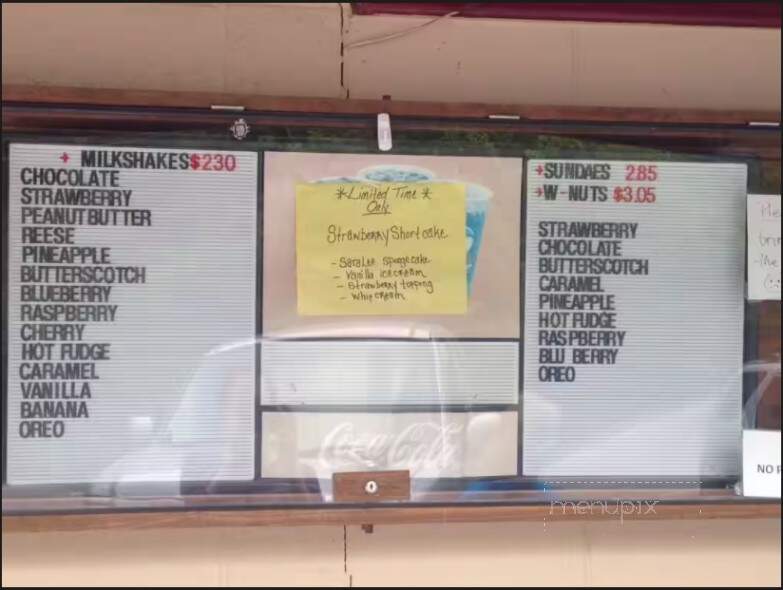 → MILKSHAKES $230
CHOCOLATE
STRAWBERRY
PEANUT BUTTER
REESE
PINEAPPLE
BUTTERSCOTCH
BLUEBERRY
RASPBERRY
CHERRY
HOT FUDGE
CARAMEL
VANILLA
BANANA
OREO
* Limited Time *
Only
Strawberry Shortcake
- Sara Lee spongecake
- Vanilla ice cream
- Strawberry topping
- Whip cream
Coca-Cola
→ SUNDAES 2.85
→ W-NUTS $3.05
STRAWBERRY
CHOCOLATE
BUTTERSCOTCH
CARAMEL
PINEAPPLE
HOT FUDGE
RASPBERRY
BLU BERRY
OREO
NO
menupix